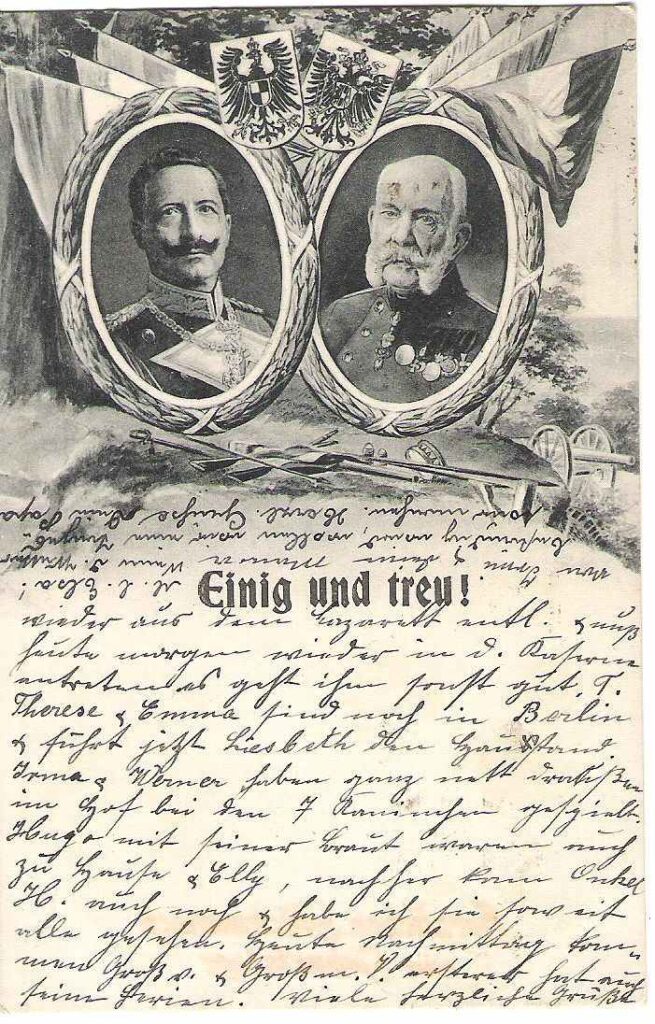 Einig und treu!
wieder aus dem Lazarett entl. & muß
heute morgen wieder in d. Kaserne
antreten, es geht ihm sonst gut. T.
Therese & Emma sind noch in Berlin
& führt jetzt Liesbeth den Hausstand.
Irma & Werner haben ganz nett draußen
im Hof bei den 7 Kaninchen gespielt.
Hugo mit seiner Braut waren auch
zu Hause & Elly, nachher kam Onkel
H. auch noch & habe ich sie soweit
alle gesehen. Heute Nachmittag kom-
men Großv. & Großm. V. ersterer hat auch
seine Ferien. Viele herzliche Grüße
M. l. Elsa!
von Dir & Deine
wollen wir
Herzl. Grüße Dein Papa